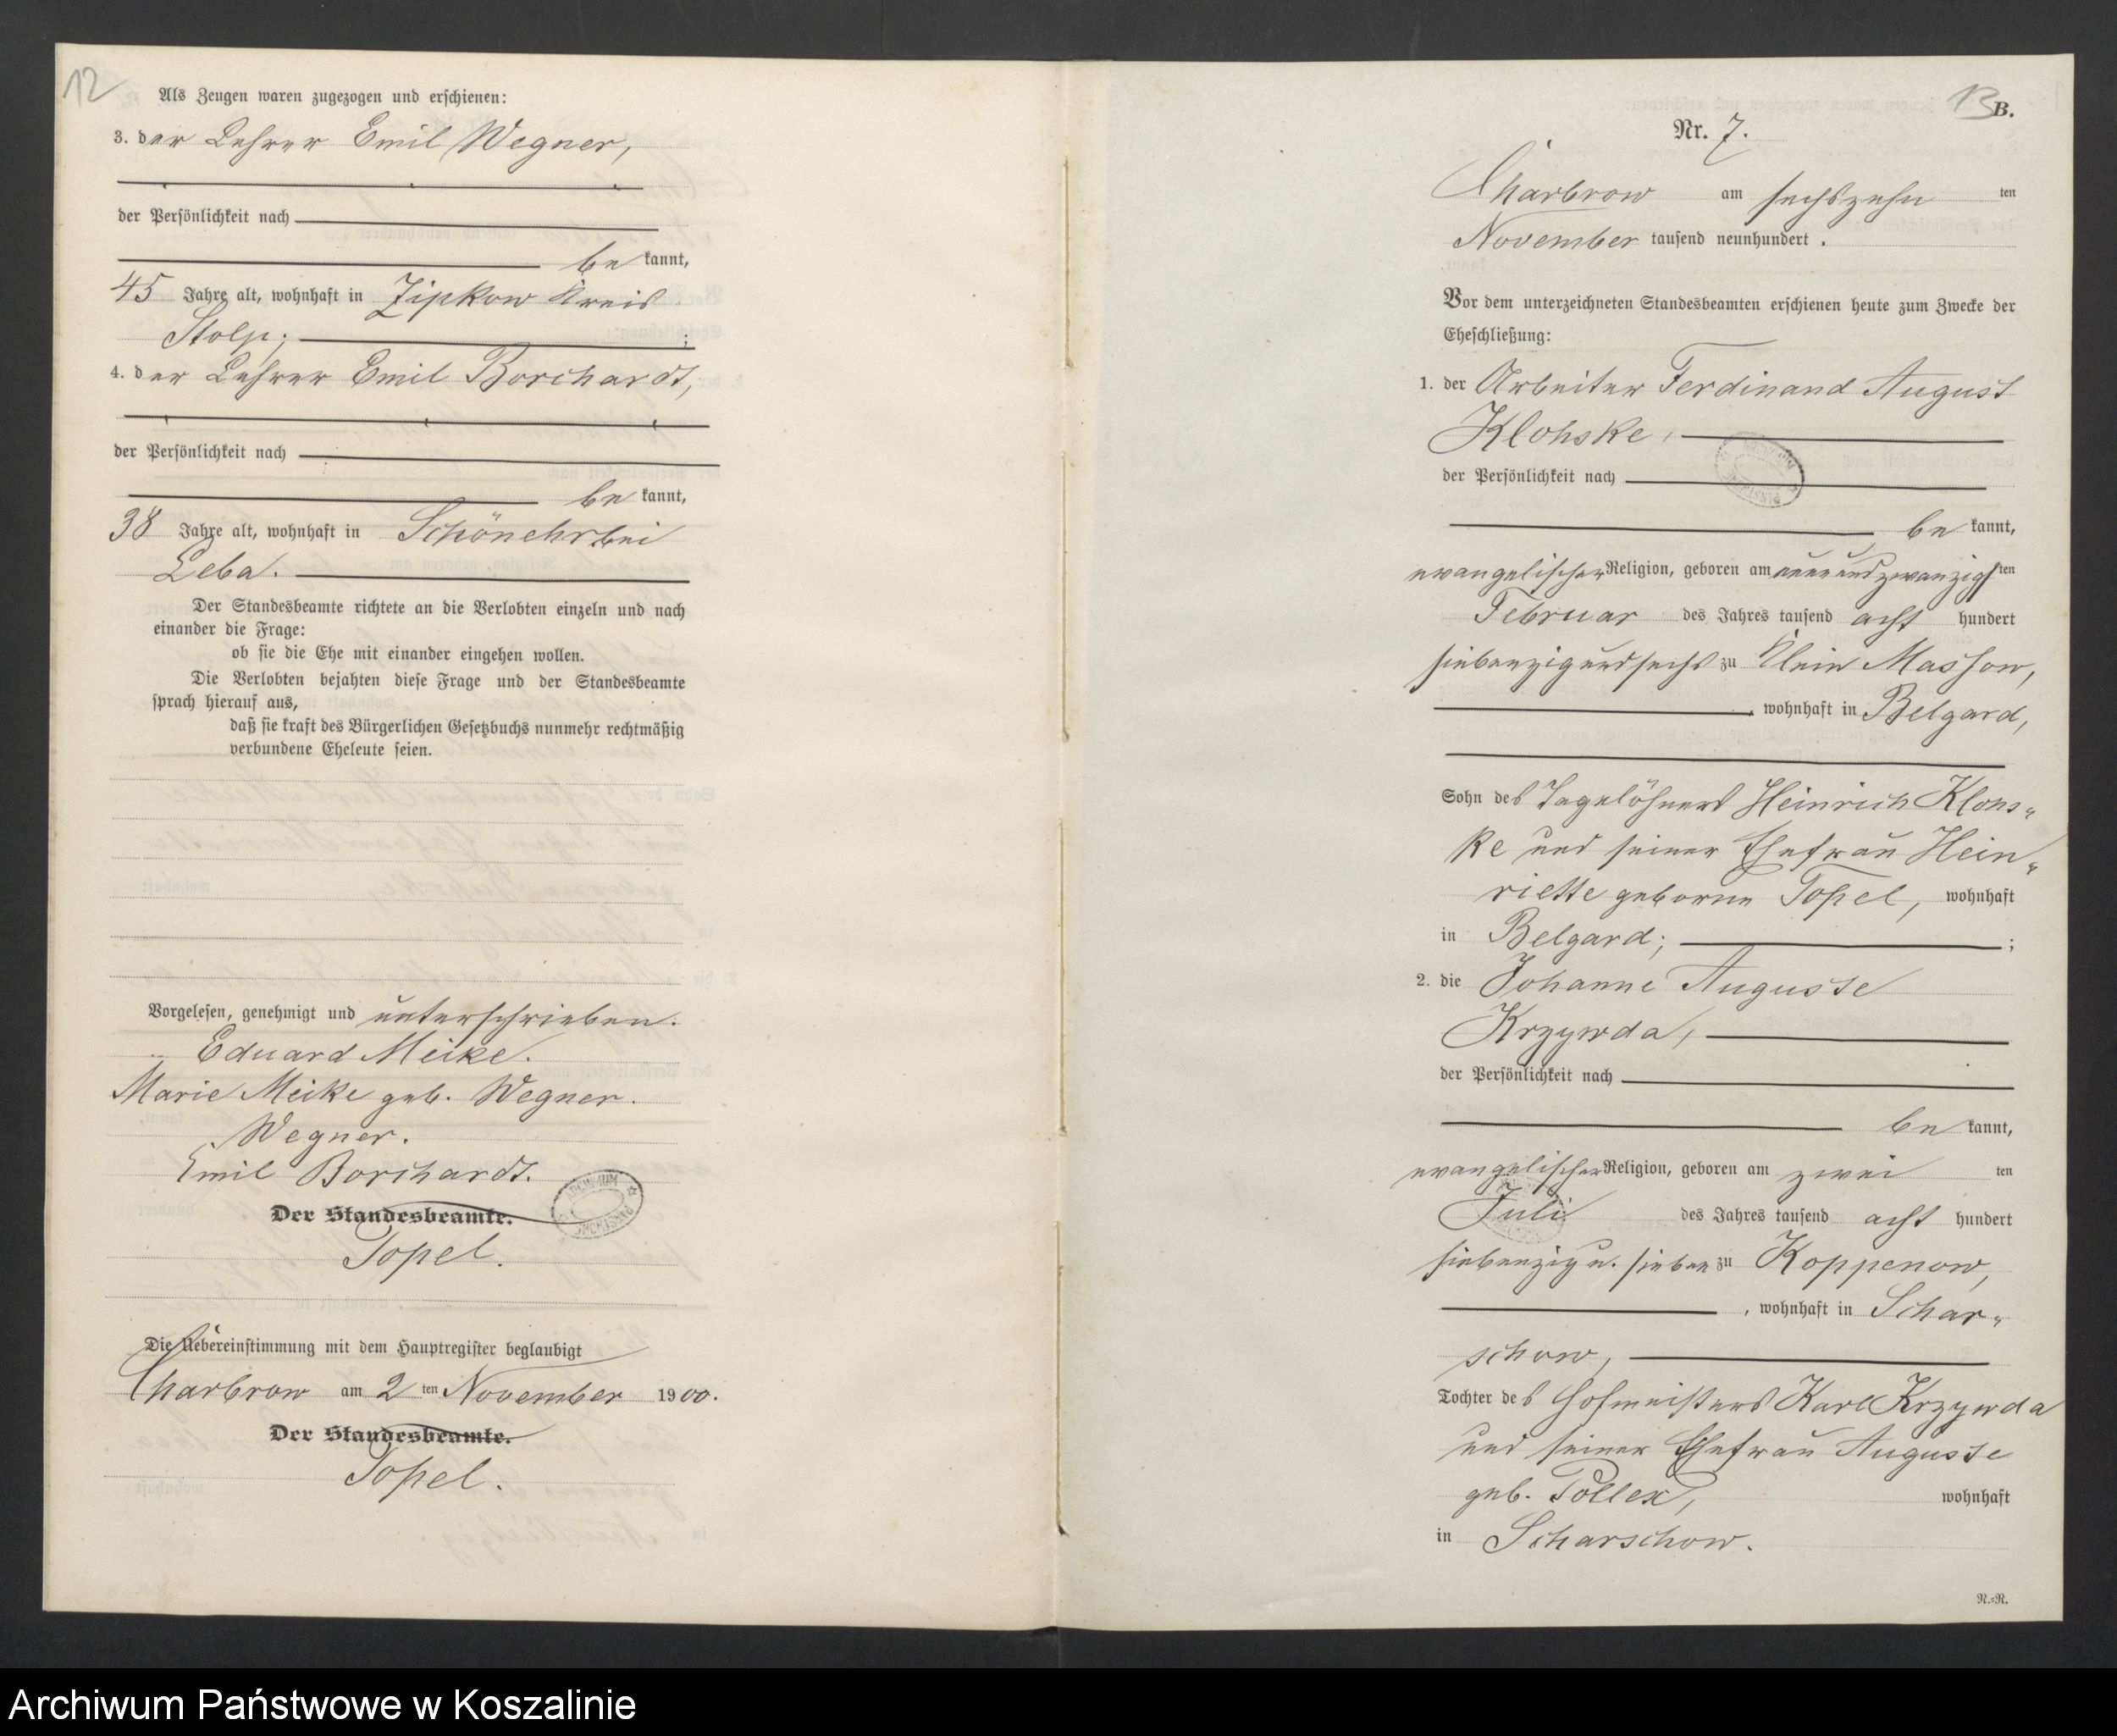 12
Als Zeugen waren zugezogen und erschienen:
3. der Lehrer Emil Wegner,
der Persönlichkeit nach
be kannt,
45 Jahre alt, wohnhaft in Zipkow Kreis
Stolp; ;
4. der Lehrer Emil Borchardt,
der Persönlichkeit nach
be kannt,
38 Jahre alt, wohnhaft in Schönehr bei
Leba.
Der Standesbeamte richtete an die Verlobten einzeln und nach
einander die Frage:
ob sie die Ehe mit einander eingehen wollen.
Die Verlobten bejahten diese Frage und der Standesbeamte
sprach hierauf aus,
daß sie kraft des Bürgerlichen Gesetzbuchs nunmehr rechtmäßig
verbundene Eheleute seien.
Vorgelesen, genehmigt und unterschrieben.
Eduard Meike.
Marie Meike geb. Wegner.
Wegner.
Emil Borchardt.
Der Standesbeamte.
Topel.
Die Uebereinstimmung mit dem Hauptregister beglaubigt
Charbrow am 2 ten November 1900.
Der Standesbeamte.
Topel.
13
B.
Nr. 7.
Charbrow am sechszehn ten
November tausend neunhundert .
Vor dem unterzeichneten Standesbeamten erschienen heute zum Zwecke der
Eheschließung:
1. der Arbeiter Ferdinand August
Klohske,
der Persönlichkeit nach
be kannt,
evangelischer Religion, geboren am neunundzwanzigsten
Februar des Jahres tausend acht hundert
siebenzigundsechs zu Klein Massow,
, wohnhaft in Belgard,
Sohn des Tagelöhners Heinrich Klohs-
ke und seiner Ehefrau Hein-
riette geborne Topel, wohnhaft
in Belgard; ;
2. die Johanne Auguste
Krzywda,
der Persönlichkeit nach
be kannt,
evangelischer Religion, geboren am zwei ten
Juli des Jahres tausend acht hundert
siebenzig u. sieben zu Koppenow,
, wohnhaft in Schar-
schow,
Tochter des Hofmeisters Karl Krzywda
und seiner Ehefrau Auguste
geb. Pollex, wohnhaft
in Scharschow.
N.=N.
Archiwum Państwowe w Koszalinie